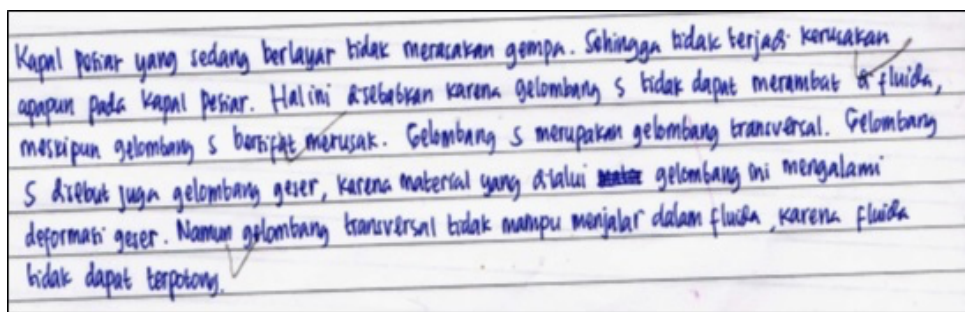 Kapal pesiar yang sedang berlayar tidak merasakan gempa. Sehingga tidak terjadi kerusakan
apapun pada kapal pesiar. Hal ini disebabkan karena gelombang S tidak dapat merambat di fluida,
meskipun gelombang S bersifat merusak. Gelombang S merupakan gelombang transversal. Gelombang
S disebut juga gelombang geser, karena material yang dilalui gelombang ini mengalami
deformasi geser. Namun gelombang transversal tidak mampu menjalar dalam fluida, karena fluida
tidak dapat terpotong.